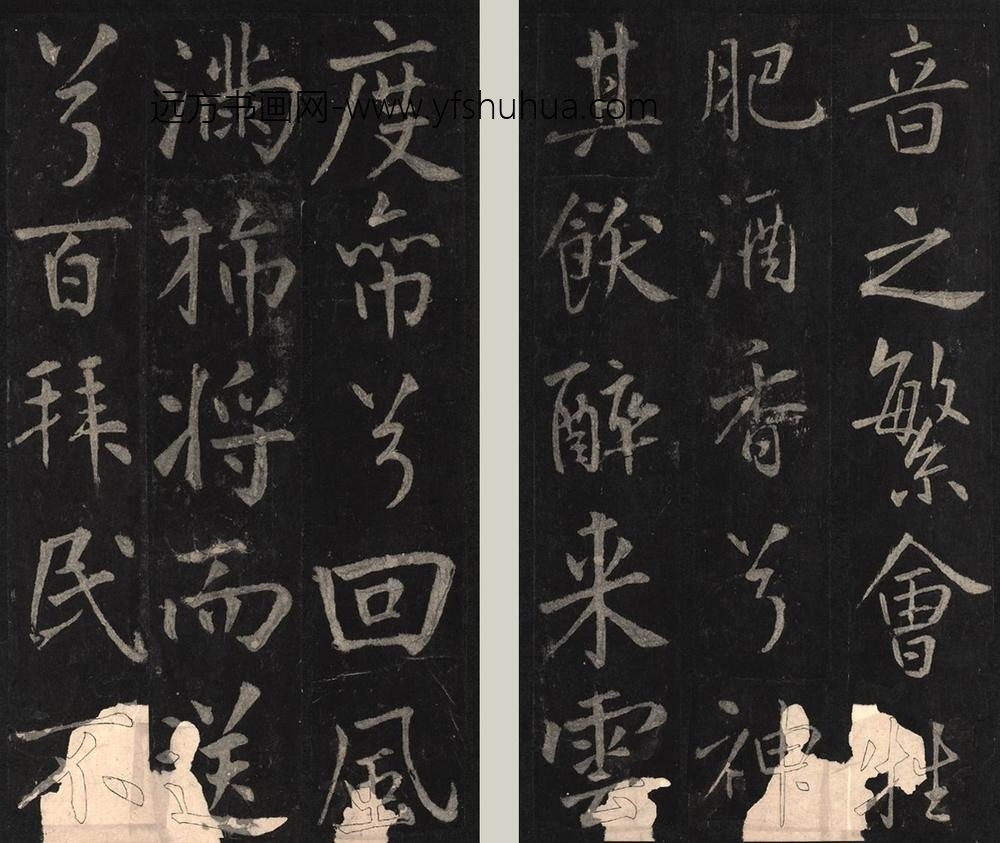 音之繁會牲
肥酒香兮神
其飫醉来雲
度帟兮回風
滿斾将而送
兮百拜民不
远方书画网-www.yfshuhua.com